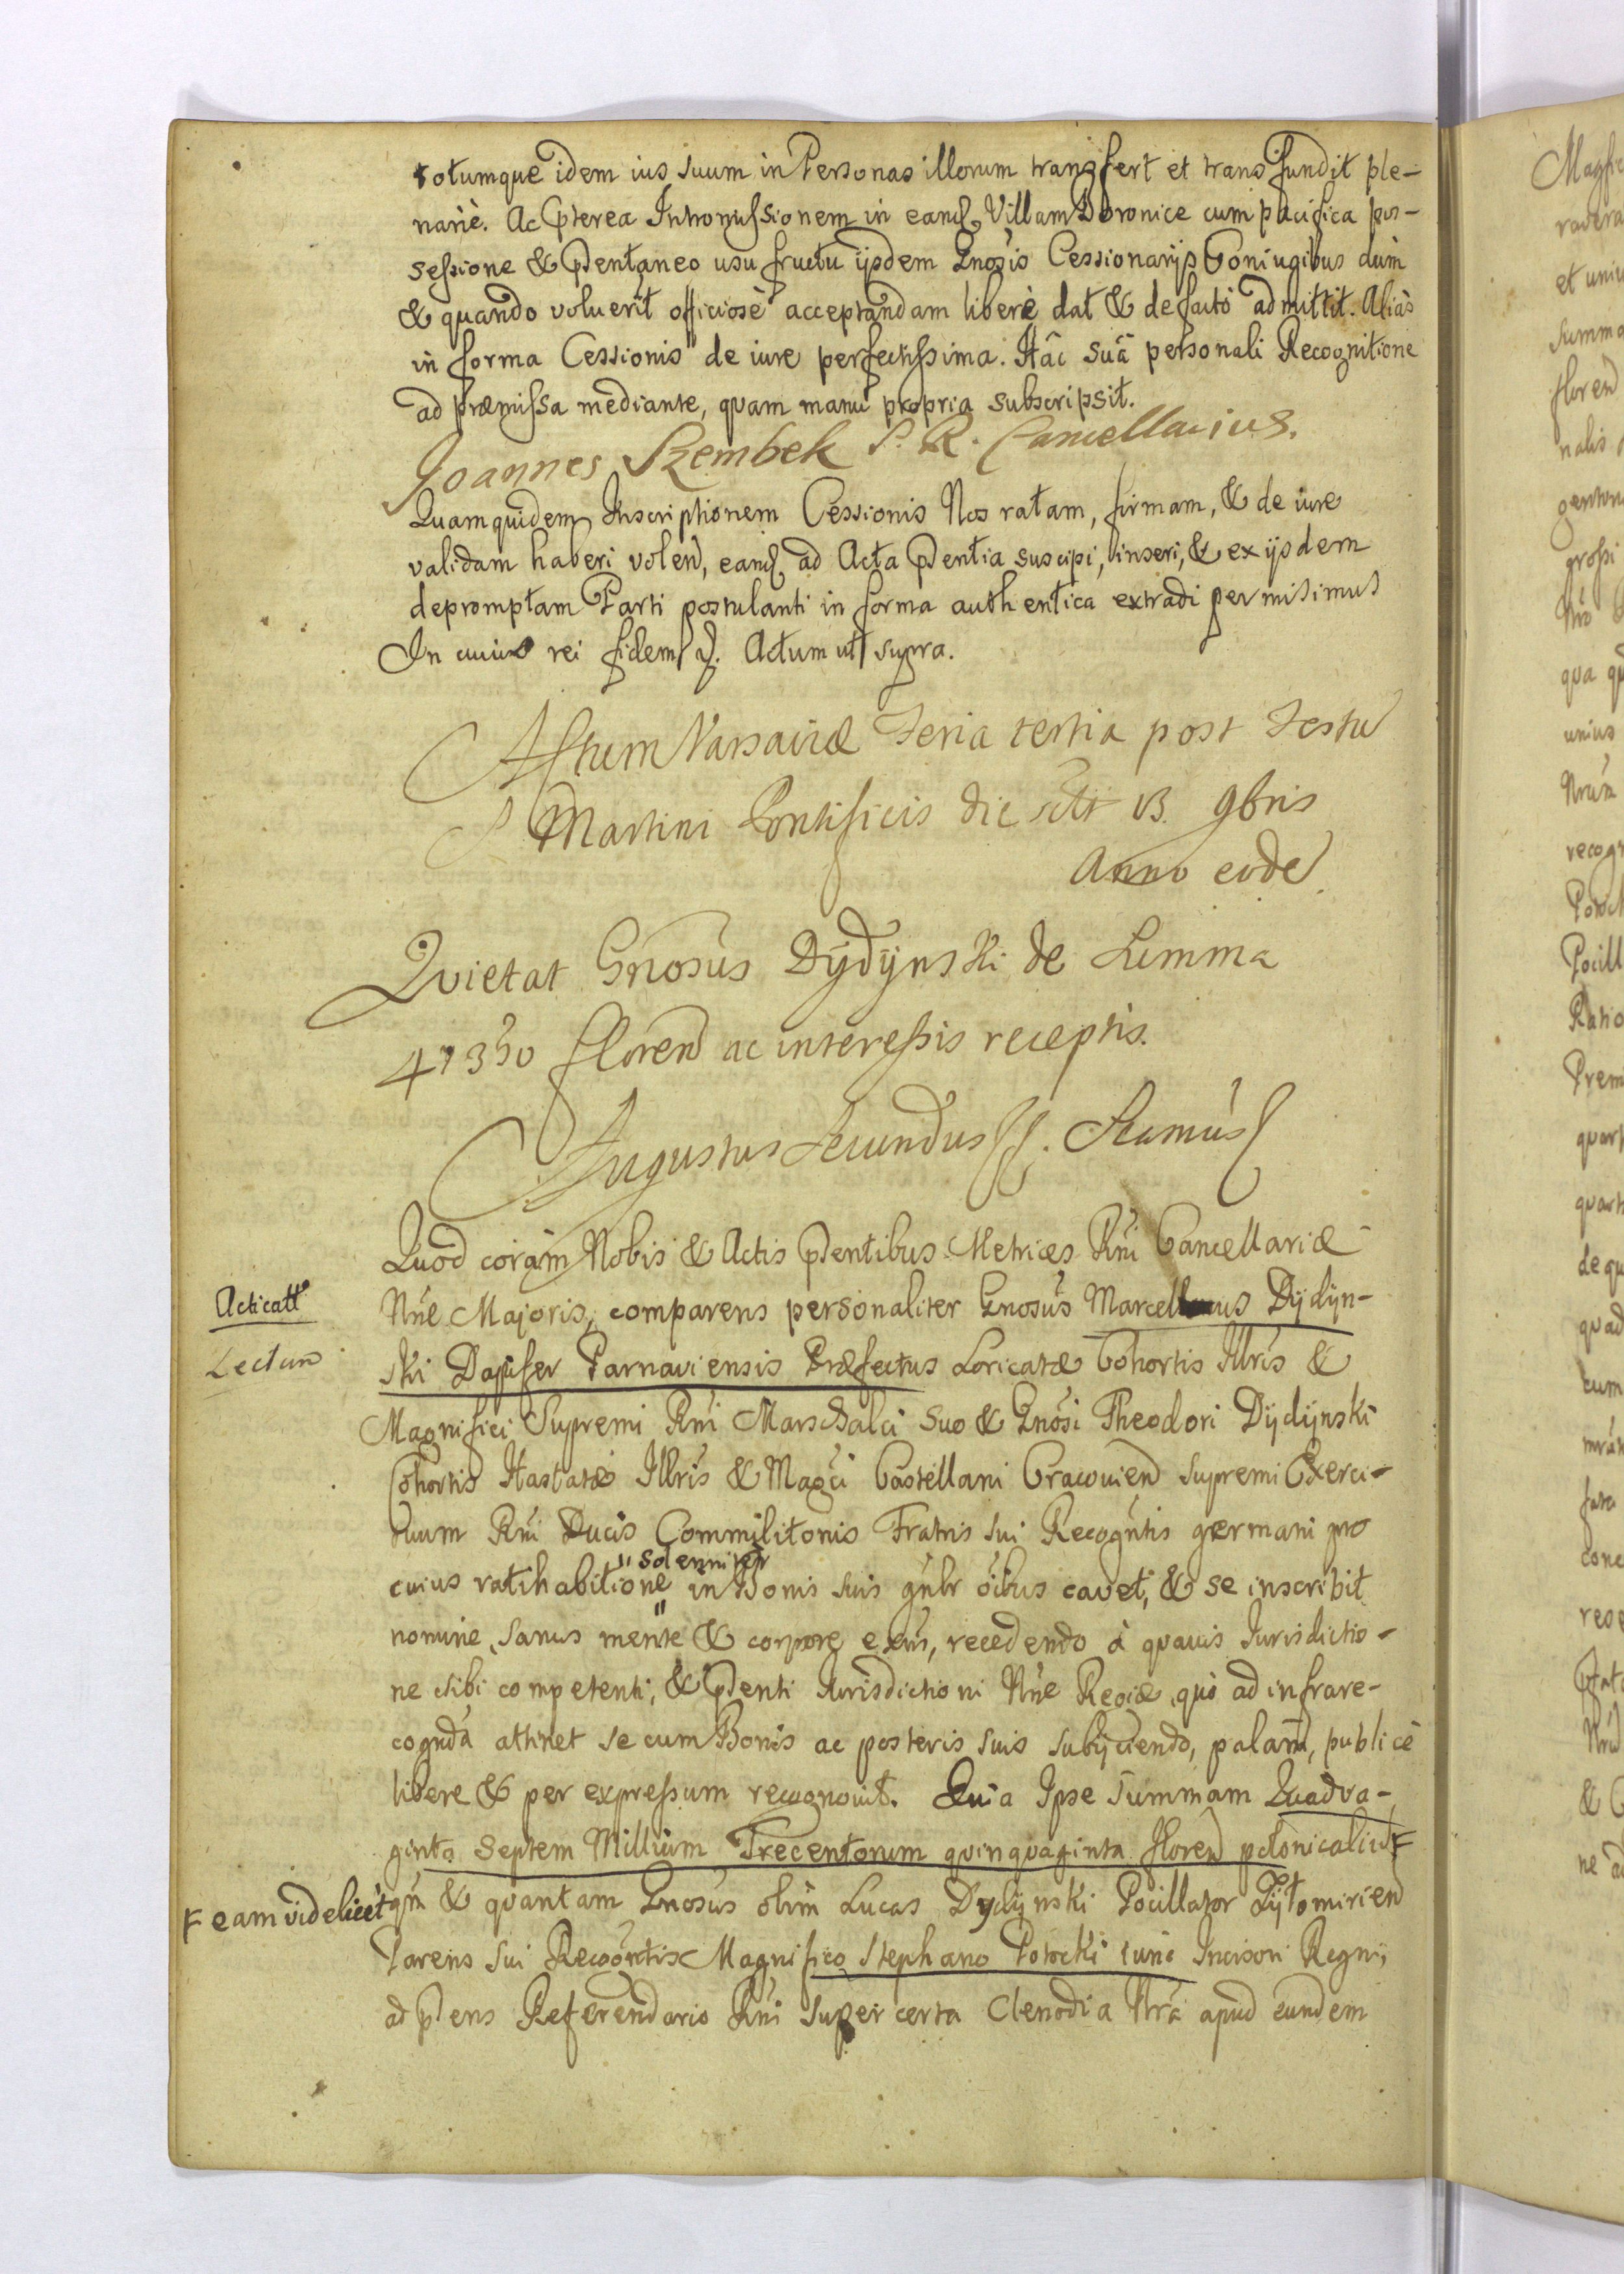 totumque idem ius suum in Personas illorum transfert et transfundit ple-
narie. Ac pterea Intromissionem in eand. Villam Boronice cum pacifica pos-
sessione & pentaneo usu fructu ijsdem Gnosis Cessionarijs Coniugibus dum
& quando voluerit officiosè acceptandam liberè dat & de facto admittit. Aliàs
in forma Cessionis de iure perfectissima. Hâc suâ personali Recognitione
ad præmissa mediante, quam manu propria subscripsit.
Joannes Szembek S. R. Cancellarius.
Quamquidem Inscriptionem Cessionis Nos ratam, firmam, & de iure
validam haberi volen, eand. ad Acta pentia suscipi, inseri, & ex ijsdem
depromptam Parti postulanti in forma authentica extradi permisimus
In cuius rei fidem &. Actum ut supra.
Actum Varsaviæ Feria tertia post Festu
S Martini Pontificis die scilt 13. 9bris
Anno eode
Quietat Gnosus Dÿdÿnski de Summa
47350 floren ac interessis receptis.
Augustus Secundus &. Stamus
Quod coràm Nobis & Actis pentibus Metrices Rni Cancellariæ
Acticatt
Nræ Majoris, comparens personaliter Gnosus Marcellinus Dÿdÿn-
Lectum
ski Dapifer Parnaviensis Præfectus Loricatæ Cohortis Illris &
Magnifici Supremi Rni Marschalci suo & Gnosi Theodori Dÿdÿnski
Cohortis Hastatæ Illris & Magci Castellani Cracovien Supremi Exerci-
tuum Rni Ducis Commilitonis Fratris sui Recogntis germani pro
solenniter
cuius ratihabitione in Bonis suis gnlr oibus cavet, & se inscribit
nomine, sanus mente & corpore exns, recedendo à quavis Iurisdictio-
ne sibi competenti, & penti Iurisdictioni Nræ Regiæ, quò ad infrare-
cognda attinet se cum Bonis ac posteris suis subijciendo, palam, publicè
libere & per expressum recognovit. Quia Ipse summam Quadra-
ginta Septem Millium Trecentorum quinquaginta floren polonicaliu F
F eam videlicet qm & quantam Gnosus olim Lucas Dydÿnski Pocillator Zÿtomirien
Parens sui Recogntis Magnifico Stephano Potocki tunc Incisori Regni,
ad pens Referendario Rni super certa Clenodia Nra apud eundem